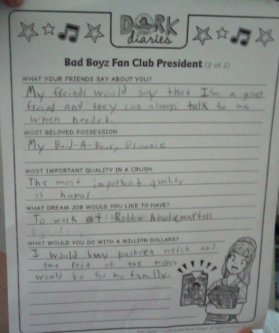 DORK
diaries
Bad Boyz Fan Club President (2 of 2)
WHAT YOUR FRIENDS SAY ABOUT YOU?
My freinds would say that I'm a great
freind and they can always talk to me
when needed.
MOST BELOVED POSSESSION
My Build-A-Bear, Brownie
MOST IMPORTANT QUALITY IN A CRUSH
The most important quality
is humor
WHAT DREAM JOB WOULD YOU LIKE TO HAVE?
To work at Roblox headquarters
WHAT WOULD YOU DO WITH A MILLION DOLLARS?
I would buy merch and
the rest of the money
would be for my family.